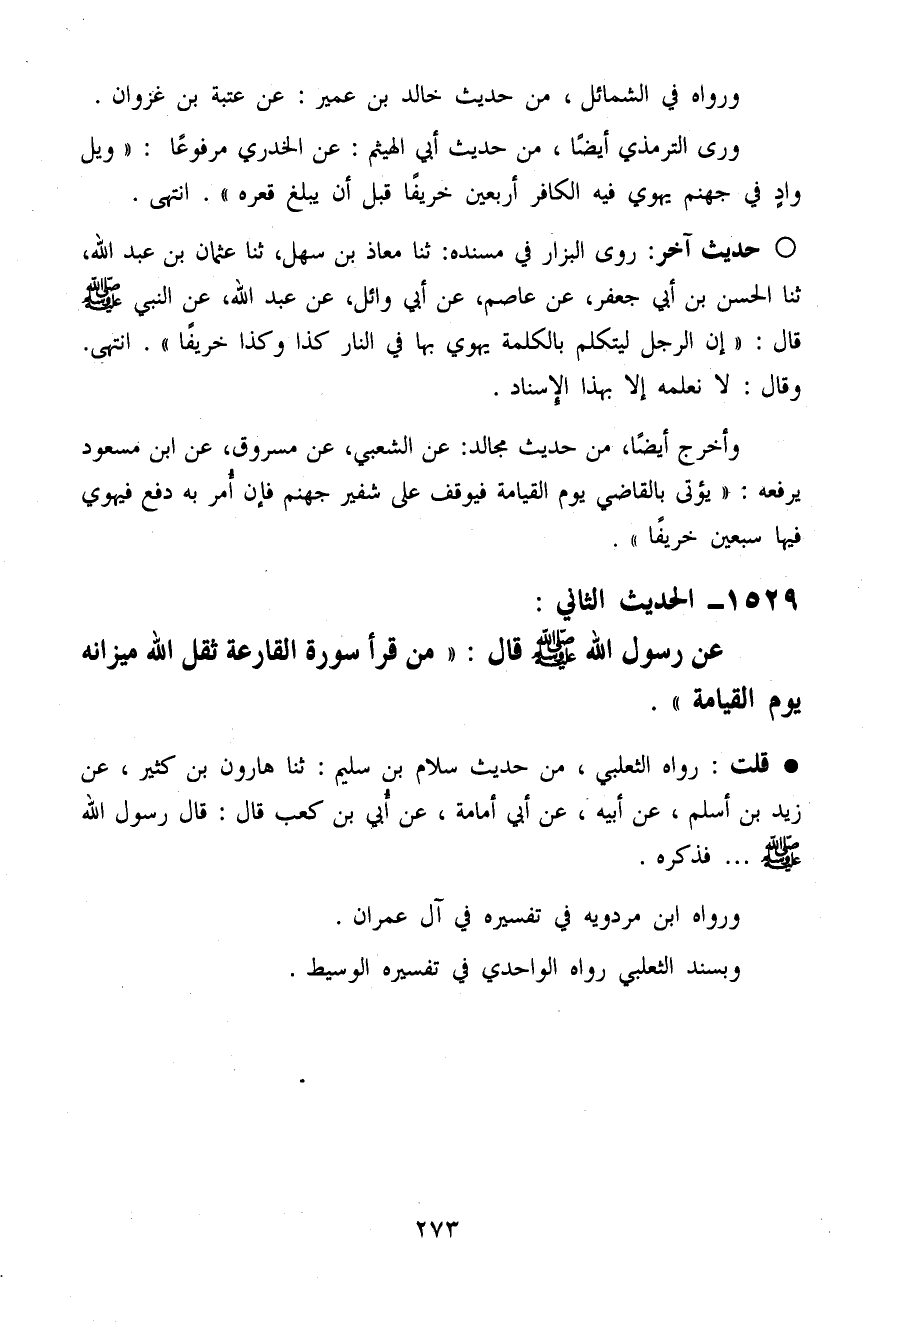 ورواه في الشمائل ، من حديث خالد بن عمير : عن عتبة بن غزوان .
ورى الترمذي أيضًا ، من حديث أبي الهيثم : عن الخدري مرفوعًا : « ويل
وادٍ في جهنم يهوي فيه الكافر أربعين خريفًا قبل أن يبلغ قعره » . انتهى .
○ حديث آخر: روى البزار في مسنده: ثنا معاذ بن سهل، ثنا عثمان بن عبد الله،
ثنا الحسن بن أبي جعفر، عن عاصم، عن أبي وائل، عن عبد الله، عن النبي ﷺ
قال : « إن الرجل ليتكلم بالكلمة يهوي بها في النار كذا وكذا خريفًا » . انتهى.
وقال : لا نعلمه إلا بهذا الإسناد .
وأخرج أيضًا، من حديث مجالد: عن الشعبي، عن مسروق، عن ابن مسعود
يرفعه : « يؤتى بالقاضي يوم القيامة فيوقف على شفير جهنم فإن أُمر به دفع فيهوي
فيها سبعين خريفًا » .
١٥٢٩ـ الحديث الثاني :
عن رسول الله ﷺ قال : « من قرأ سورة القارعة ثقل الله ميزانه
يوم القيامة » .
● قلت : رواه الثعلبي ، من حديث سلام بن سليم : ثنا هارون بن كثير ، عن
زيد بن أسلم ، عن أبيه ، عن أبي أمامة ، عن أُبي بن كعب قال : قال رسول الله
ﷺ ... فذكره .
ورواه ابن مردويه في تفسيره في آل عمران .
وبسند الثعلبي رواه الواحدي في تفسيره الوسيط .
٢٧٣